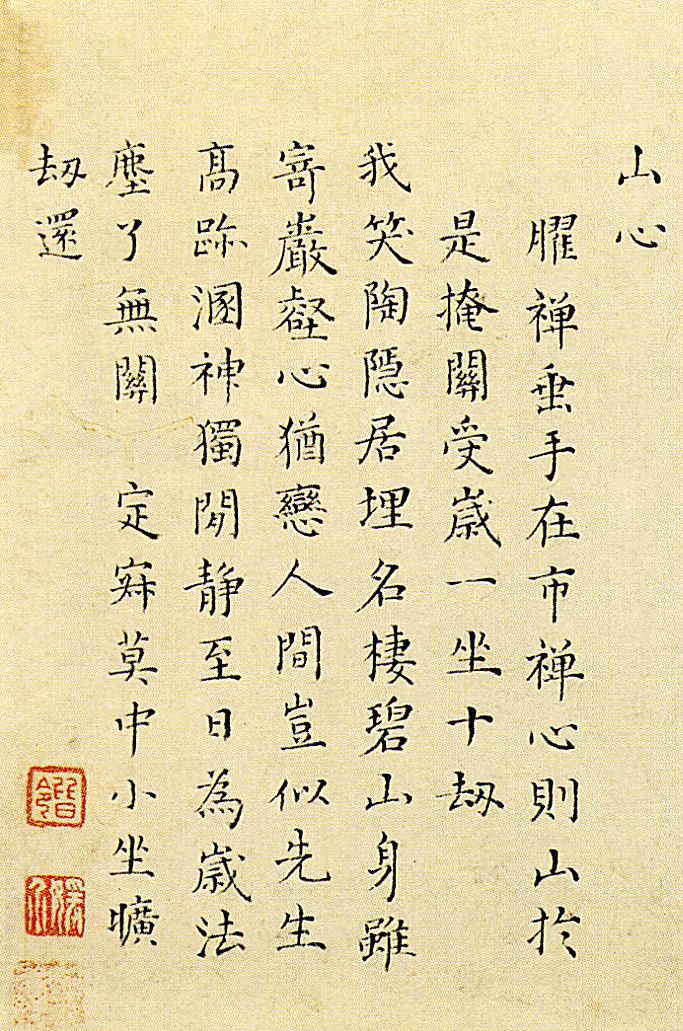 山心
臞禅垂手在市禅心則山於
是掩關受歲一坐十刼
我笑陶隱居埋名棲碧山身雖
寄巖壑心猶戀人間豈似先生
髙跡溷神獨閒静至日為歲法
塵了無關 定寂莫中小坐曠
刼還